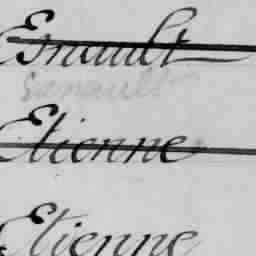 Esnault
Esnault
Etienne
Etienne